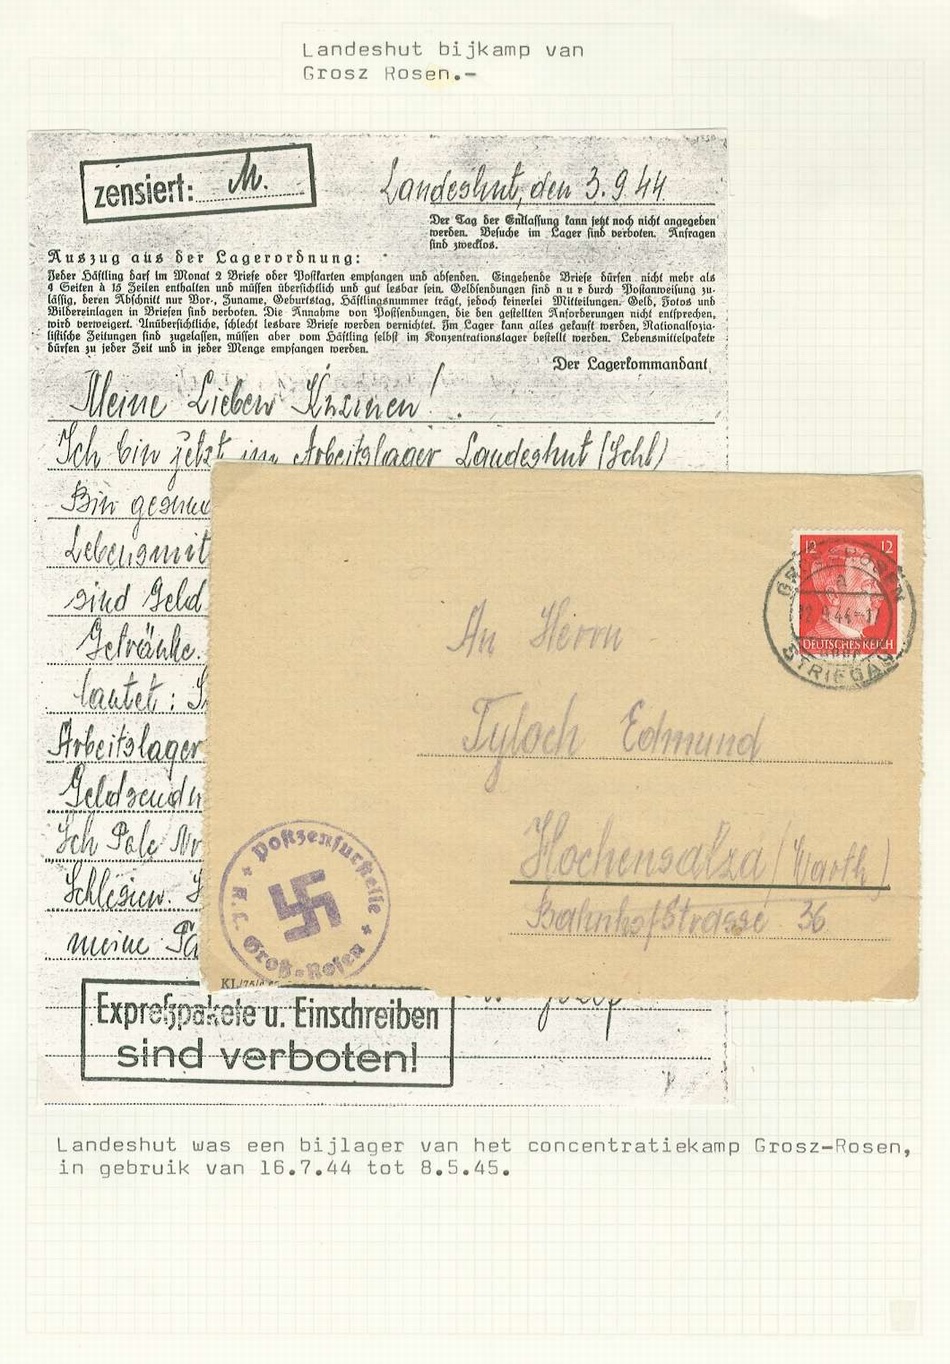 Landeshut bijkamp van
Grosz Rosen.-
zensiert: M.
Landeshut, den 3.9.44.
Der Tag der Entlassung kann jetzt noch nicht angegeben
werden. Besuche im Lager sind verboten. Anfragen
sind zwecklos.
Auszug aus der Lagerordnung:
Jeder Häftling darf im Monat 2 Briefe oder Postkarten empfangen und absenden. Eingehende Briefe dürfen nicht mehr als
4 Seiten à 15 Zeilen enthalten und müssen übersichtlich und gut lesbar sein. Geldsendungen sind nur durch Postanweisung zu-
lässig, deren Abschnitt nur Vor-, Zuname, Geburtstag, Häftlingsnummer trägt, jedoch keinerlei Mitteilungen. Geld, Fotos und
Bildereinlagen in Briefen sind verboten. Die Annahme von Postsendungen, die den gestellten Anforderungen nicht entsprechen,
wird verweigert. Unübersichtliche, schlecht lesbare Briefe werden vernichtet. Im Lager kann alles gekauft werden, Nationalsozia-
listische Zeitungen sind zugelassen, müssen aber vom Häftling selbst im Konzentrationslager bestellt werden. Lebensmittelpakete
dürfen zu jeder Zeit und in jeder Menge empfangen werden.
Der Lagerkommandant
Meine Lieben
Ich bin jetzt im Arbeitslager Landeshut (Schl)
Bin gesun
Lebensmit
sind Geld
Getränke.
lautet:
Arbeitslager
Geldsend
Ich Pole Nr
Schlesien.
meine
12 12
GROSS-ROSEN
DEUTSCHES REICH
STRIEGAU
An Herrn
Tyloch Edmund
Hochensalza (Warth)
Bahnhofstrasse 36
Postzensurstelle
K.L. Groß-Rosen
Expreßpakete u. Einschreiben
sind verboten!
Landeshut was een bijlager van het concentratiekamp Grosz-Rosen,
in gebruik van 16.7.44 tot 8.5.45.